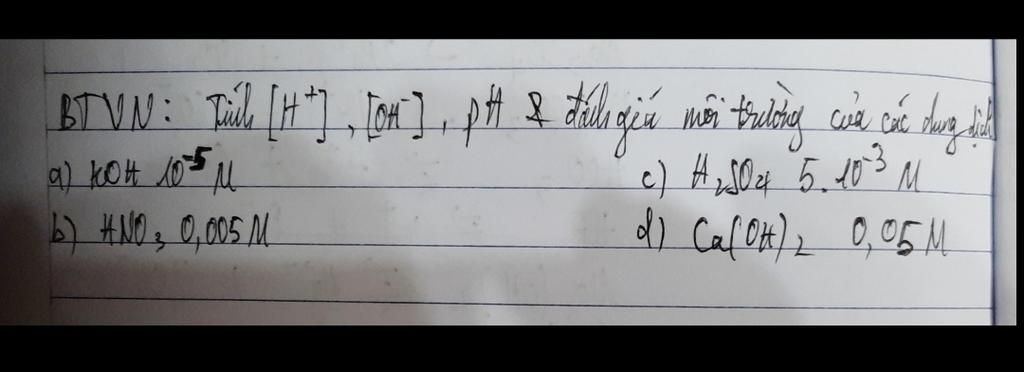 BTVN: Tính [H⁺], [OH⁻], pH & đánh giá môi trường của các dung dịch
a) KOH 10⁻⁵ M c) H₂SO₄ 5.10⁻³ M
b) HNO₃ 0,005 M d) Ca(OH)₂ 0,05 M